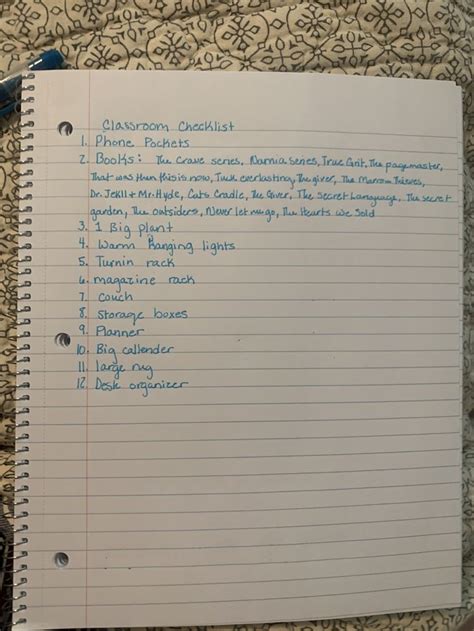 Classroom Checklist
1. Phone Pockets
2. Books: The Crave series, Narnia series, True Grit, The pagemaster,
That was then this is now, Tuck everlasting, The giver, The Marrow Thieves,
Dr. Jekll + Mr. Hyde, Cats Cradle, The Giver, The Secret Language, The secret
garden, The outsiders, Never let me go, The Hearts we Sold
3. 1 Big plant
4. Warm Hanging lights
5. Turnin rack
6. magazine rack
7. couch
8. Storage boxes
9. Planner
10. Big callender
11. large rug
12. Desk organizer